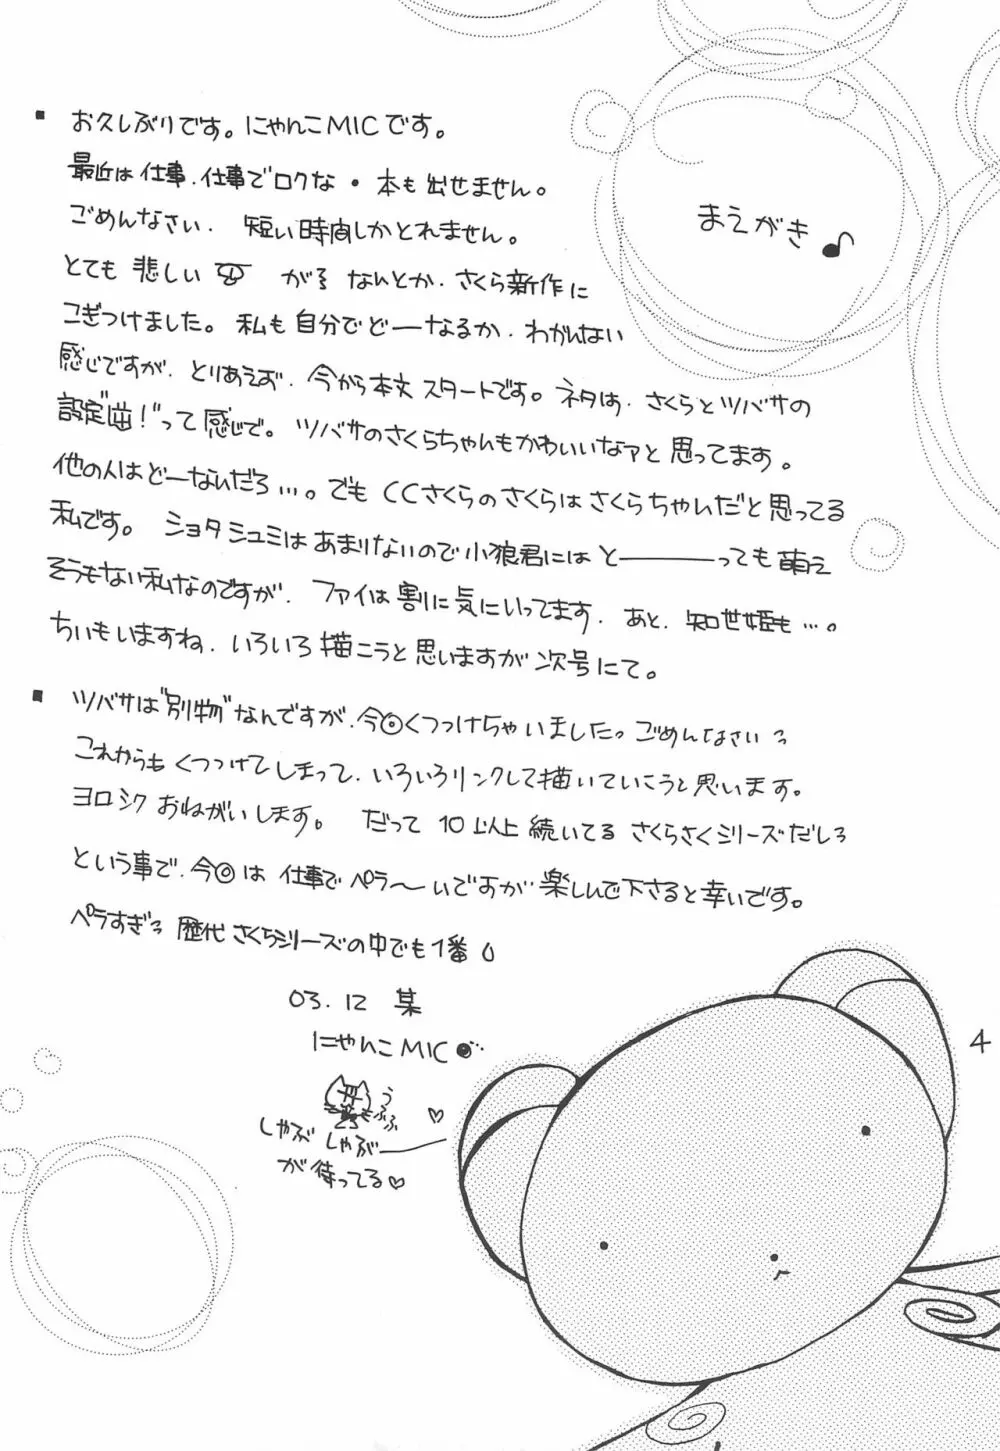 まえがき♪
■ お久しぶりです。にゃんこMICです。
最近は仕事、仕事でロクな・本も出せません。
ごめんなさい、短い時間しかとれません。
とても悲しい がなんとか、さくら新作に
こぎつけました。私も自分でどーなるか、わかんない
感じですが、とりあえず、今から本文スタートです。ネタは、さくらとツバサの
設定"逆!"って感じで。ツバサのさくらちゃんもかわいいなァと思ってます。
他の人はどーなんだろ…。でもCCさくらのさくらはさくらちゃんだと思ってる
私です。ショタシュミはあまりないので小狼君にはと――――っても萌え
そうもない私なのですが、ファイは割に気にいってます、あと、知世姫も…。
ちいもいますね、いろいろ描こうと思いますが次号にて。
■ ツバサは"別物"なんですが、今回くっつけちゃいました。ごめんなさいっ
これからもくっつけてしまって、いろいろリンクして描いていこうと思います。
ヨロシクおねがいします。だって10以上続いてるさくらさくシリーズだしっ
という事で、今回は仕事でペラ〜いですが楽しんで下さると幸いです。
ペラすぎっ歴代さくらシリーズの中でも1番
03.12 某
にゃんこMIC
うふふ
しゃぶしゃぶー
が待ってる♡
4